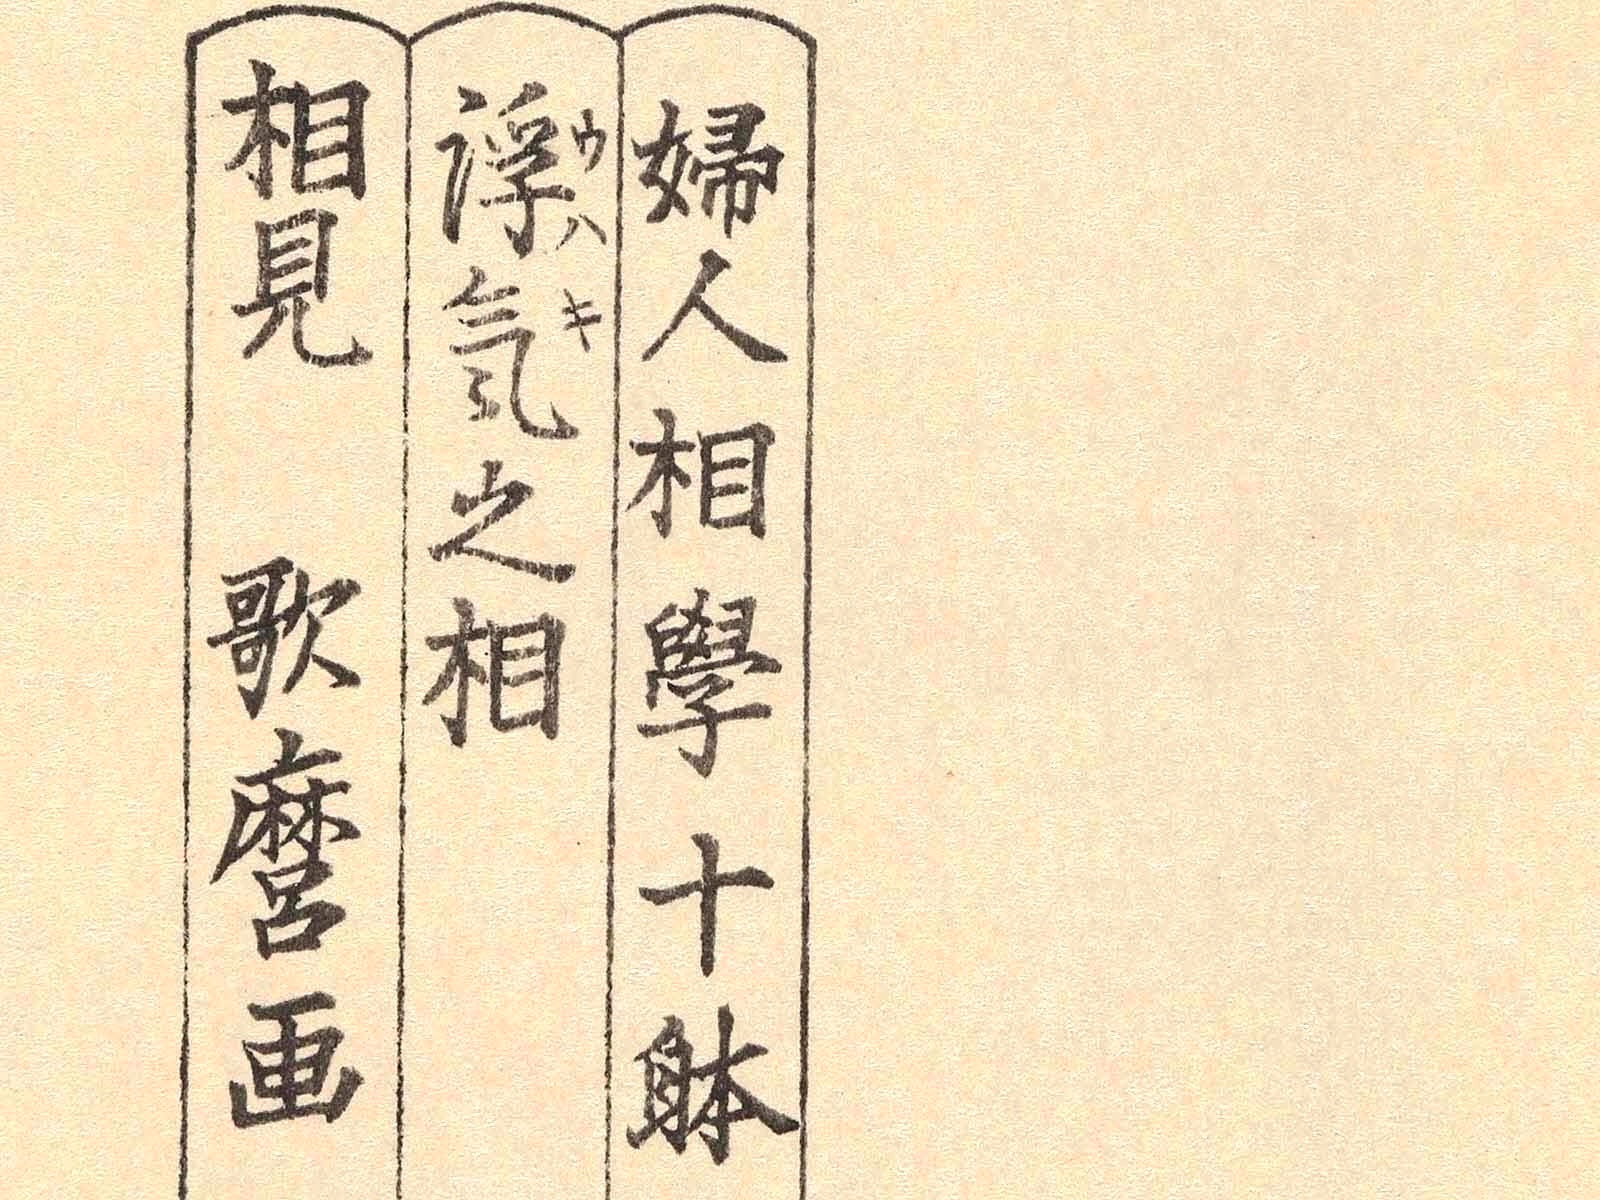 婦人相學十躰
浮氣之相
ウハキ
相見 歌麿画